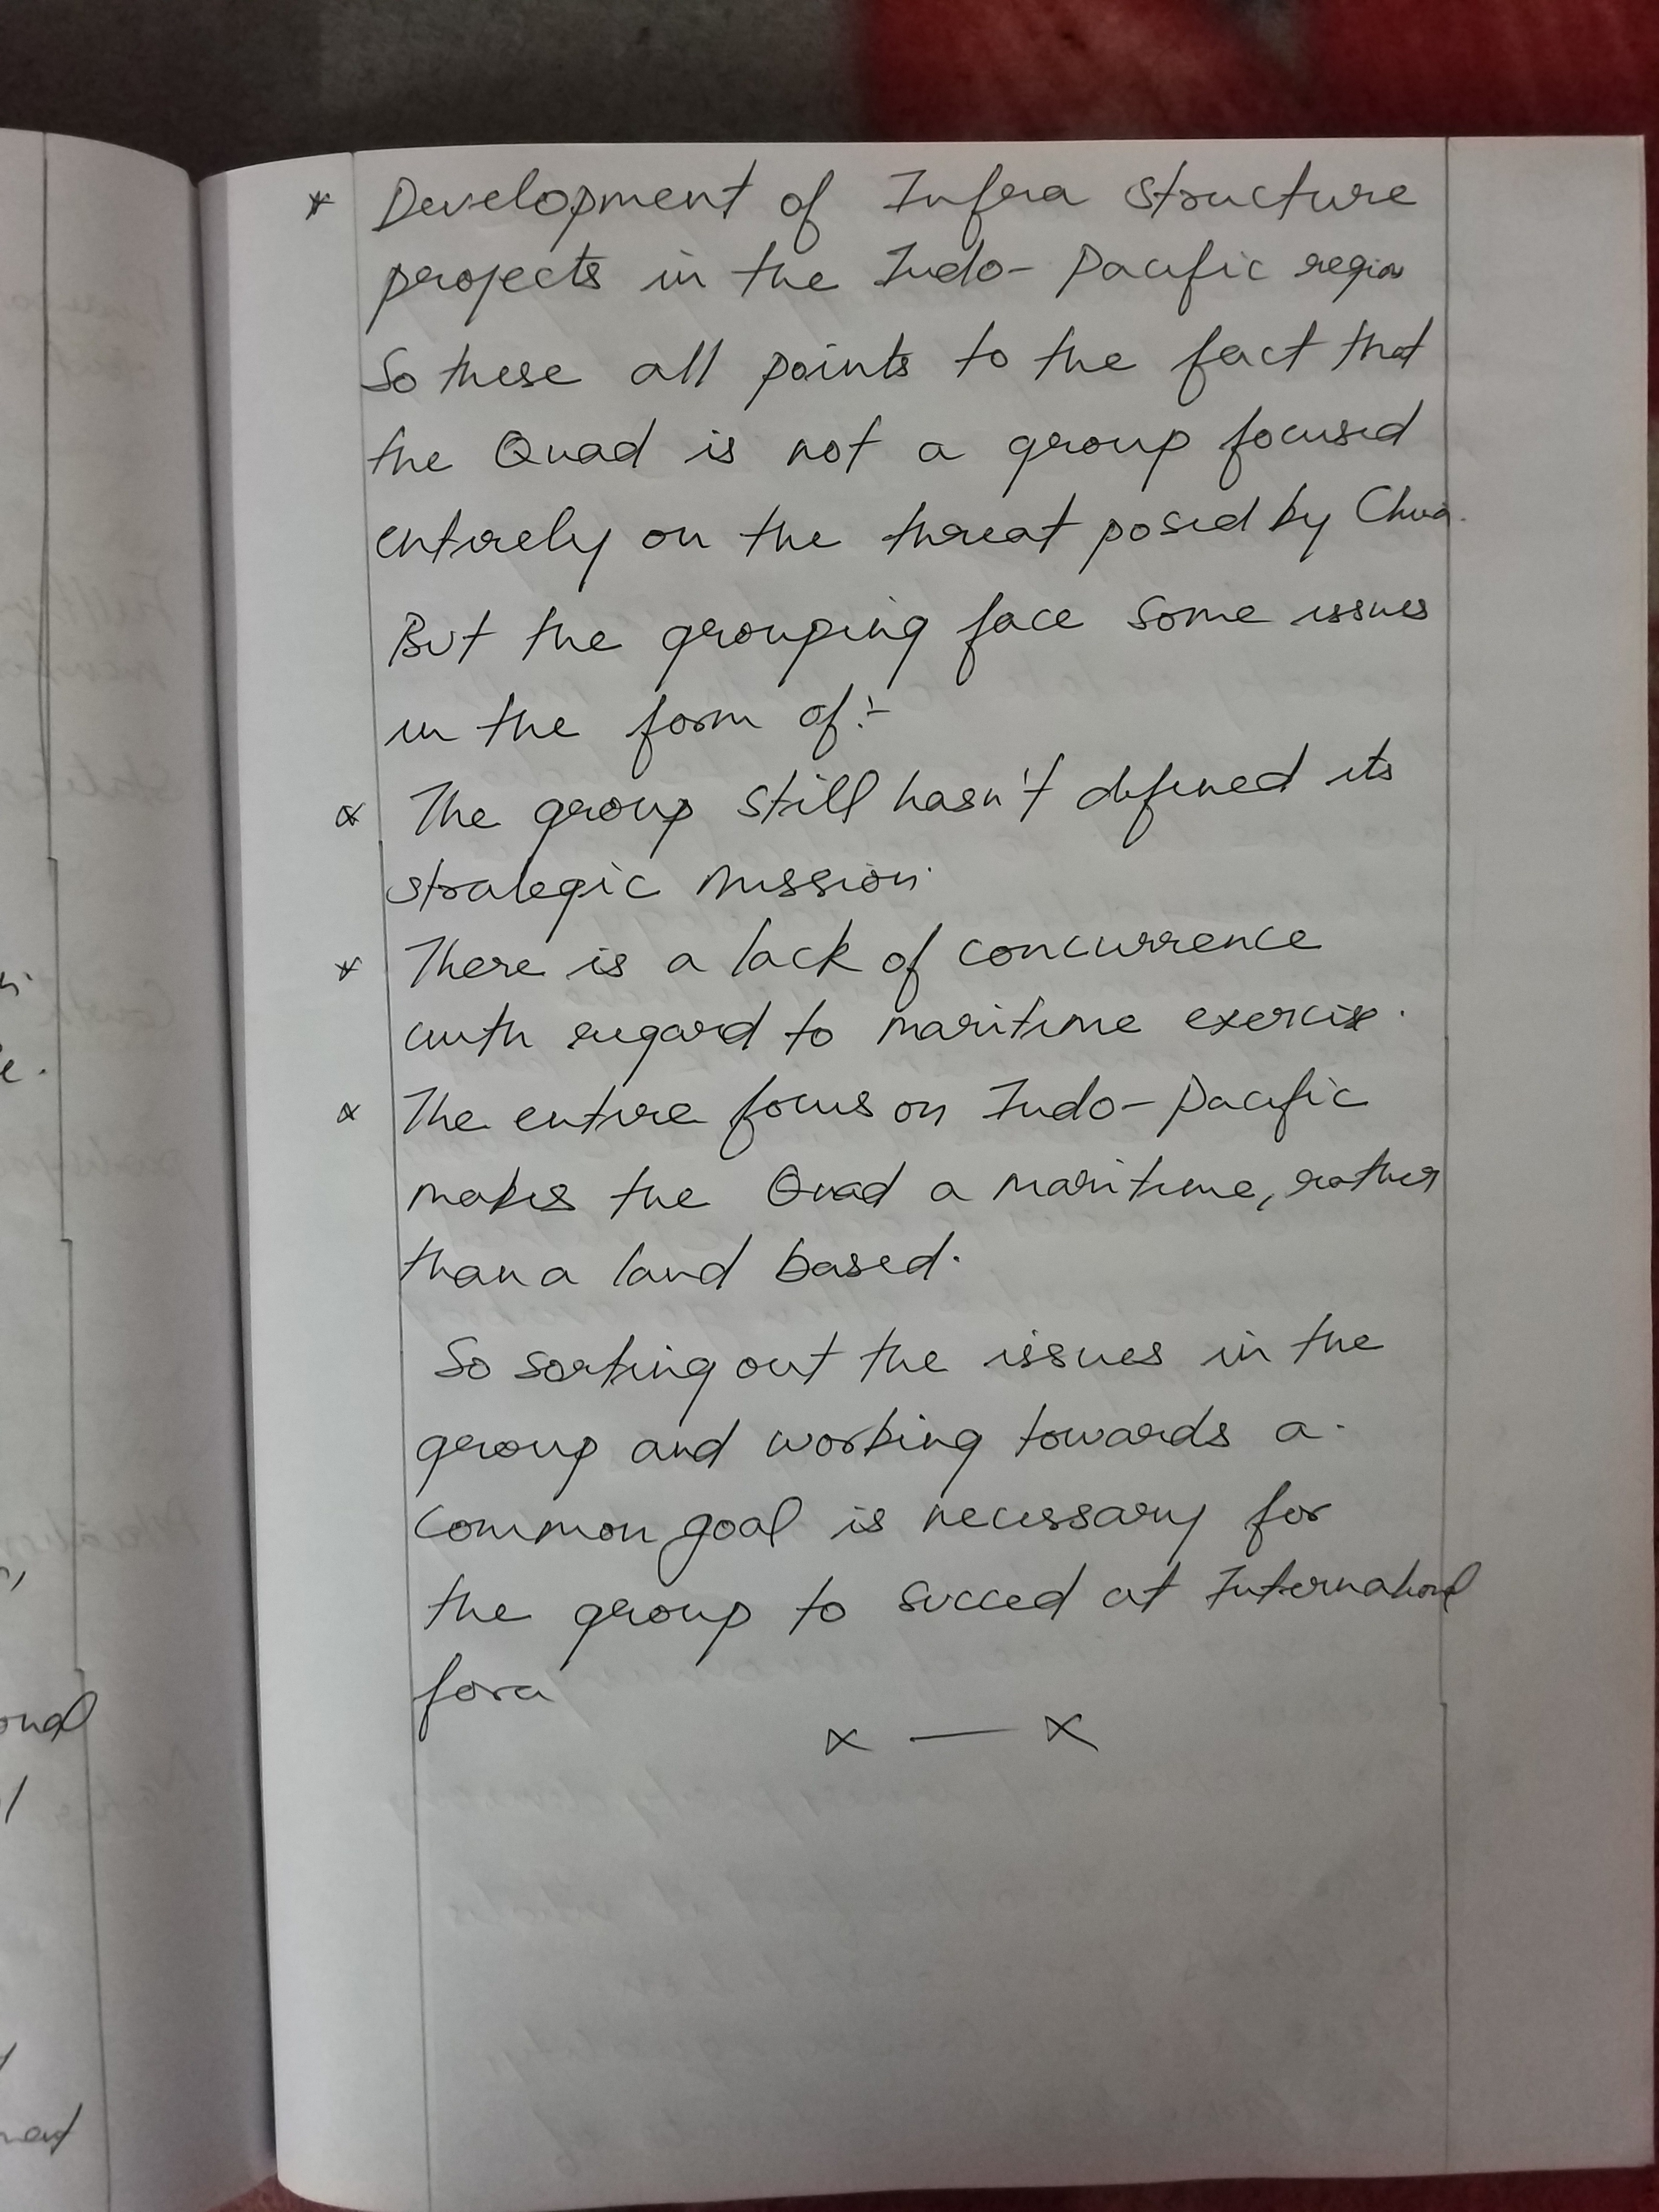 * Development of Infra structure
projects in the Indo-Pacific region
So these all points to the fact that
the Quad is not a group focused
entirely on the threat posed by China.
But the grouping face some issues
in the form of:-
* The group still hasn't defined its
strategic mission.
* There is a lack of concurrence
with regard to maritime exercise.
* The entire focus on Indo-Pacific
makes the Quad a maritime, rather
than a land based.
So sorting out the issues in the
group and working towards a
common goal is necessary for
the group to succed at International
fora
x — x